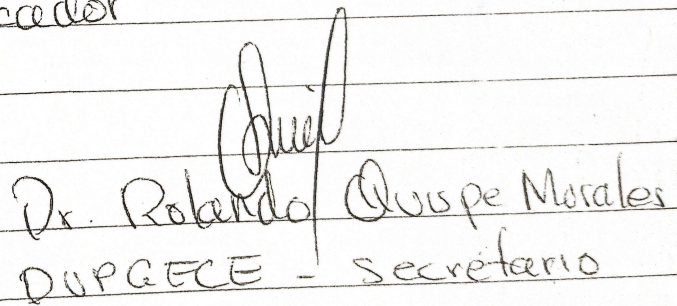 Dr. Rolando Quispe Morales
DUPGECE - Secretario